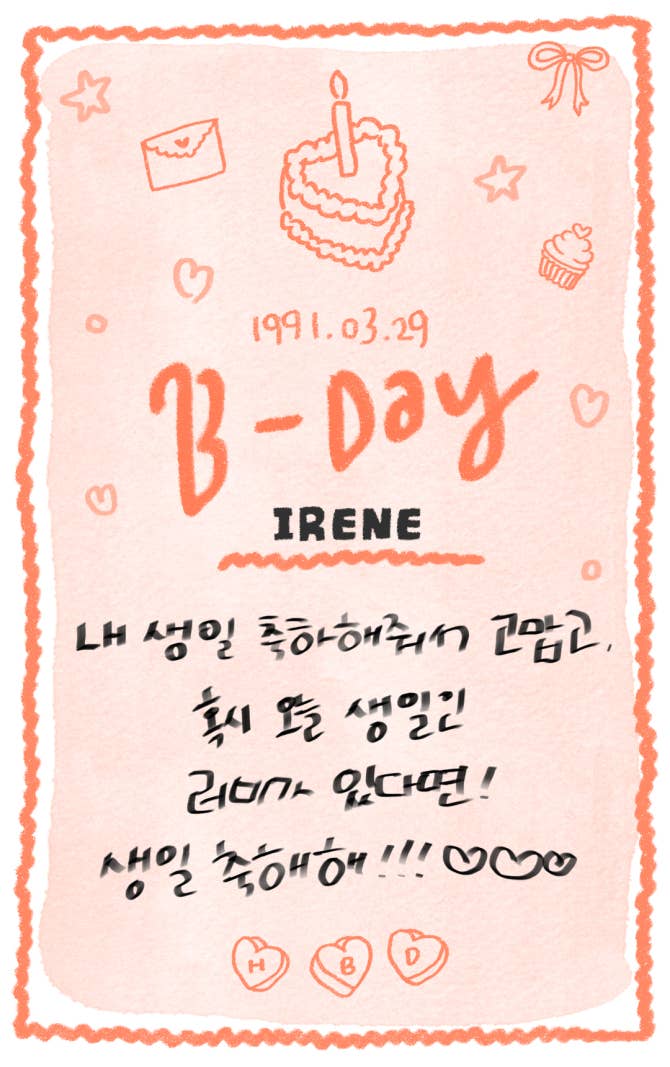 1991.03.29
B-Day
IRENE
내 생일 축하해줘서 고맙고,
혹시 오늘 생일긴
러비가 있다면!
생일 축해해!!! ♡♡♡
H B D